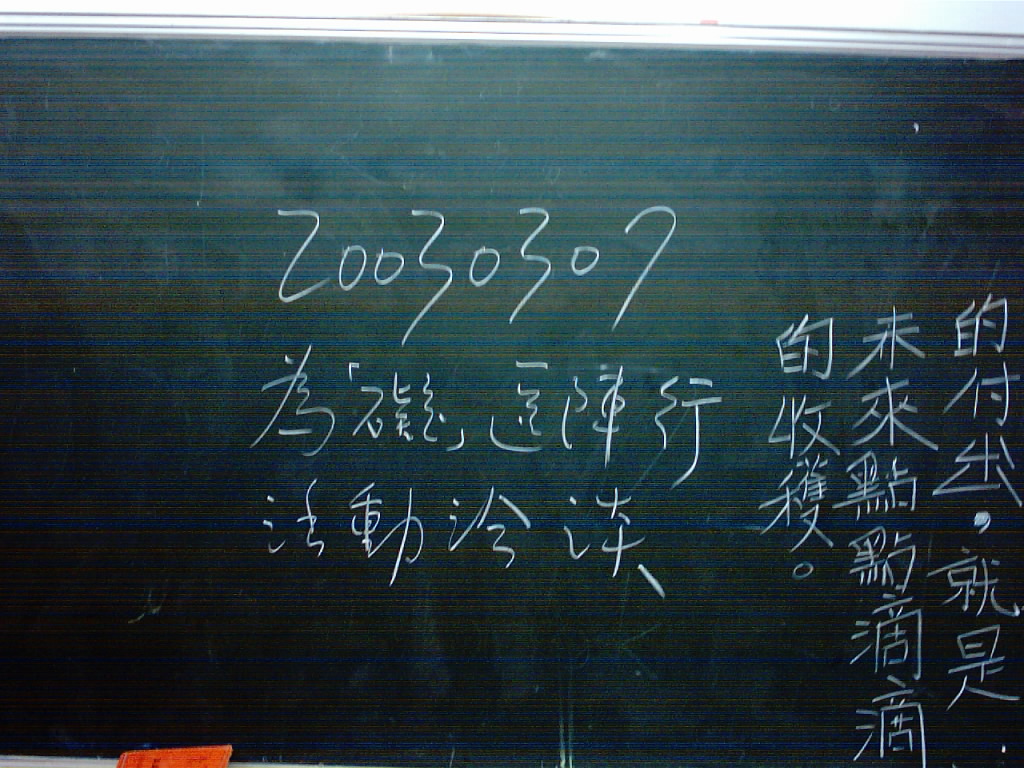 20030307
為「礙」這陣行
活動冷淡、
的付出，就是
未來點點滴滴
的收穫。